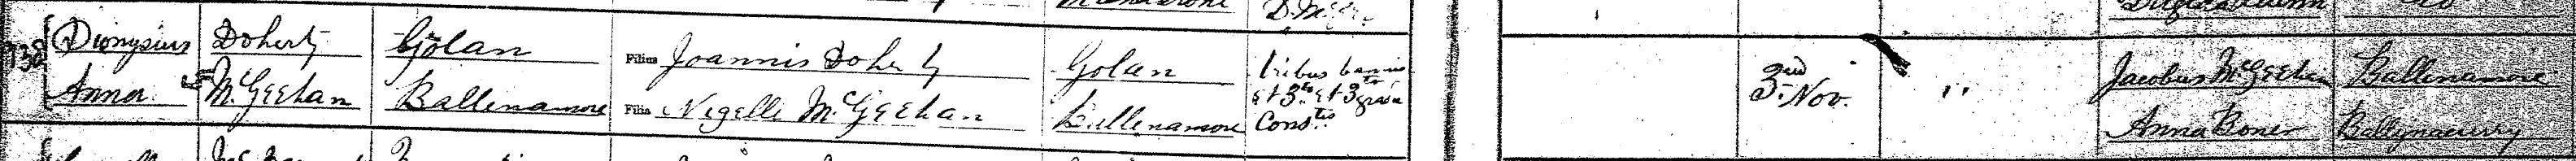 Dionysius Doherty Golan Filius Joannis Doherty Golan tribus bannis
Anna McGeehan Ballinamore Filia Nigelli McGeehan Ballinamore et 3tii et 3 gradu Constis
3rd Nov.
Jacobus McGeehan Ballinamore
Anna Boner Ballynacurry